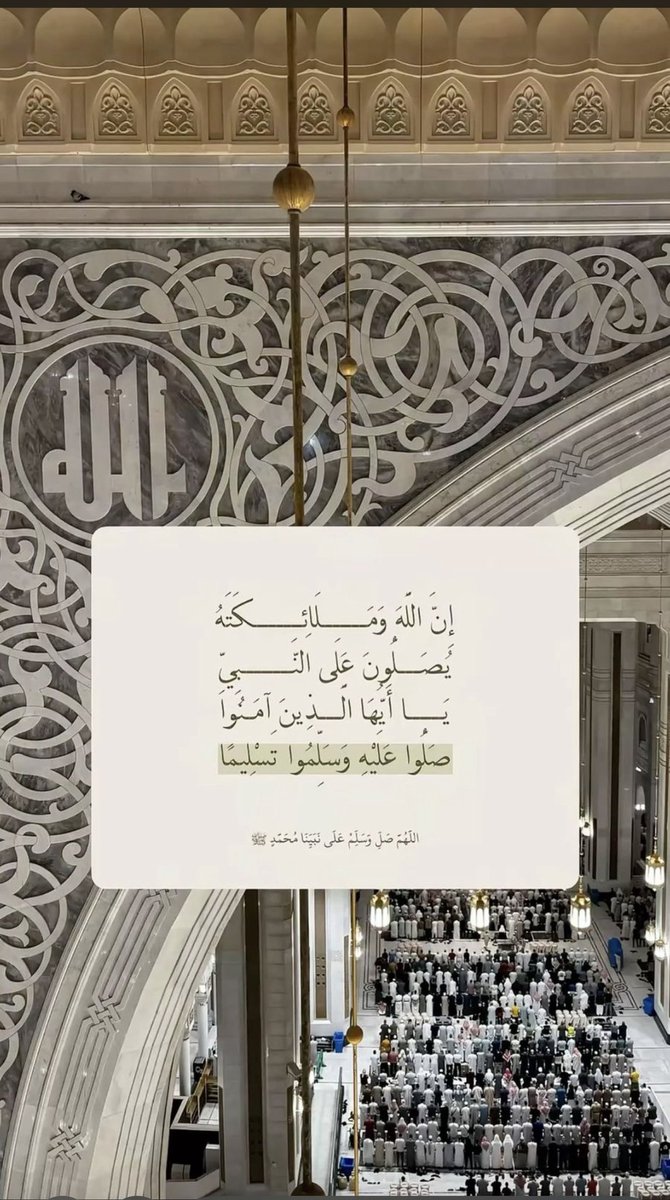 الله
إِنَّ اللَّهَ وَمَلَائِكَتَهُ
يُصَلُّونَ عَلَى النَّبِيِّ
يَا أَيُّهَا الَّذِينَ آمَنُوا
صَلُّوا عَلَيْهِ وَسَلِّمُوا تَسْلِيمًا
اللَّهُمَّ صَلِّ وَسَلِّمْ عَلَى نَبِيِّنَا مُحَمَّدٍ ﷺ